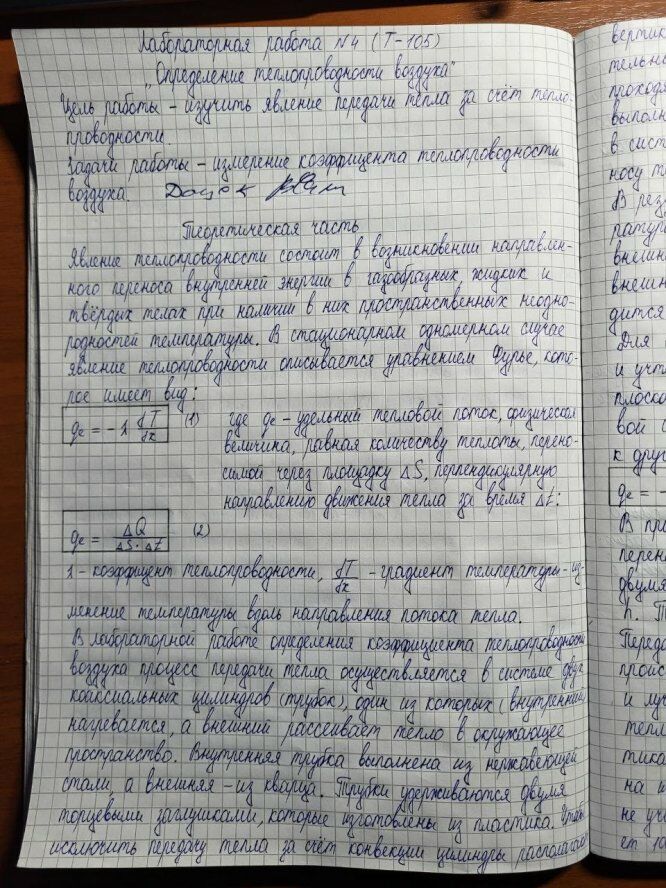 Лабораторная работа №4 (Т-105)
„Определение теплопроводности воздуха"
Цель работы – изучить явление передачи тепла за счёт тепло-
проводности.
Задачи работы – измерение коэффициента теплопроводности
воздуха.
Теоретическая часть
Явление теплопроводности состоит в возникновении направлен-
ного переноса внутренней энергии в газообразных, жидких и
твёрдых телах при наличии в них пространственных неодно-
родностей температуры. В стационарном одномерном случае
явление теплопроводности описывается уравнением Фурье, кото-
рое имеет вид:
qₑ = -λ dT/dx (1) где qₑ – удельный тепловой поток, физическая
величина, равная количеству теплоты, перено-
симой через площадку ΔS, перпендикулярную
направлению движения тепла за время Δt:
qₑ = ΔQ/ΔS·Δt (2)
λ – коэффициент теплопроводности, dT/dx – градиент температуры – из-
менение температуры вдоль направления потока тепла.
В лабораторной работе определения коэффициента теплопроводности
воздуха процесс передачи тепла осуществляется в системе двух
коаксиальных цилиндров (трубок), один из которых (внутренний)
нагревается, а внешний рассеивает тепло в окружающее
пространство. Внутренняя трубка выполнена из нержавеющей
стали, а внешняя – из кварца. Трубки удерживаются двумя
торцевыми заглушками, которые изготовлены из пластика. Чтобы
исключить передачу тепла за счёт конвекции цилиндры располагают
вертик
тельны
проходя
выполн
в сист
носу т
В рез
ратур
внешн
внешн
дится
Для
и учит
плоско
вой
к друг
qₑ =
В пр
перен
двумя
h. T
Переда
проис
и лу
тепл
тика
на
не учт
ет